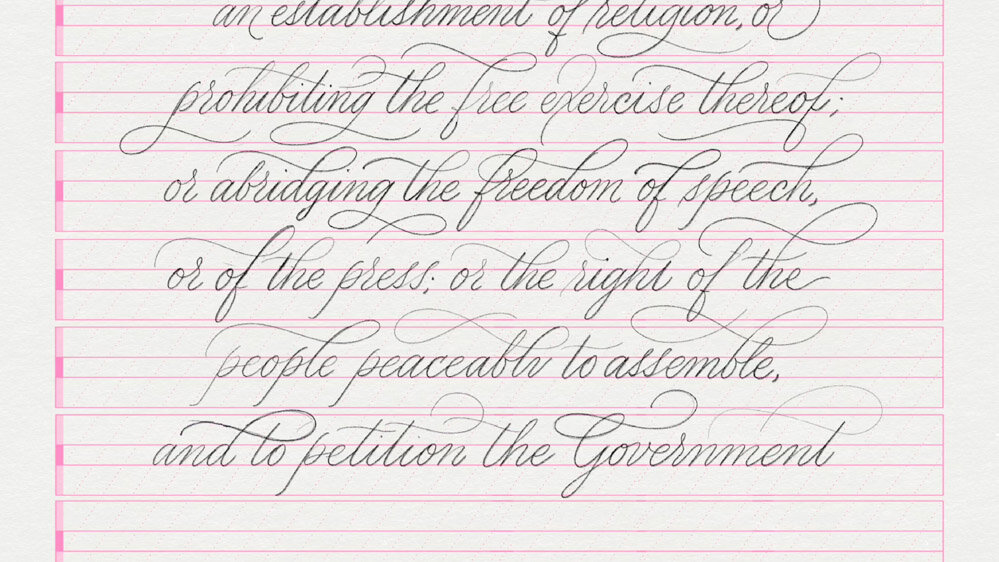 an establishment of religion, or
prohibiting the free exercise thereof;
or abridging the freedom of speech,
or of the press; or the right of the
people peaceably to assemble,
and to petition the Government